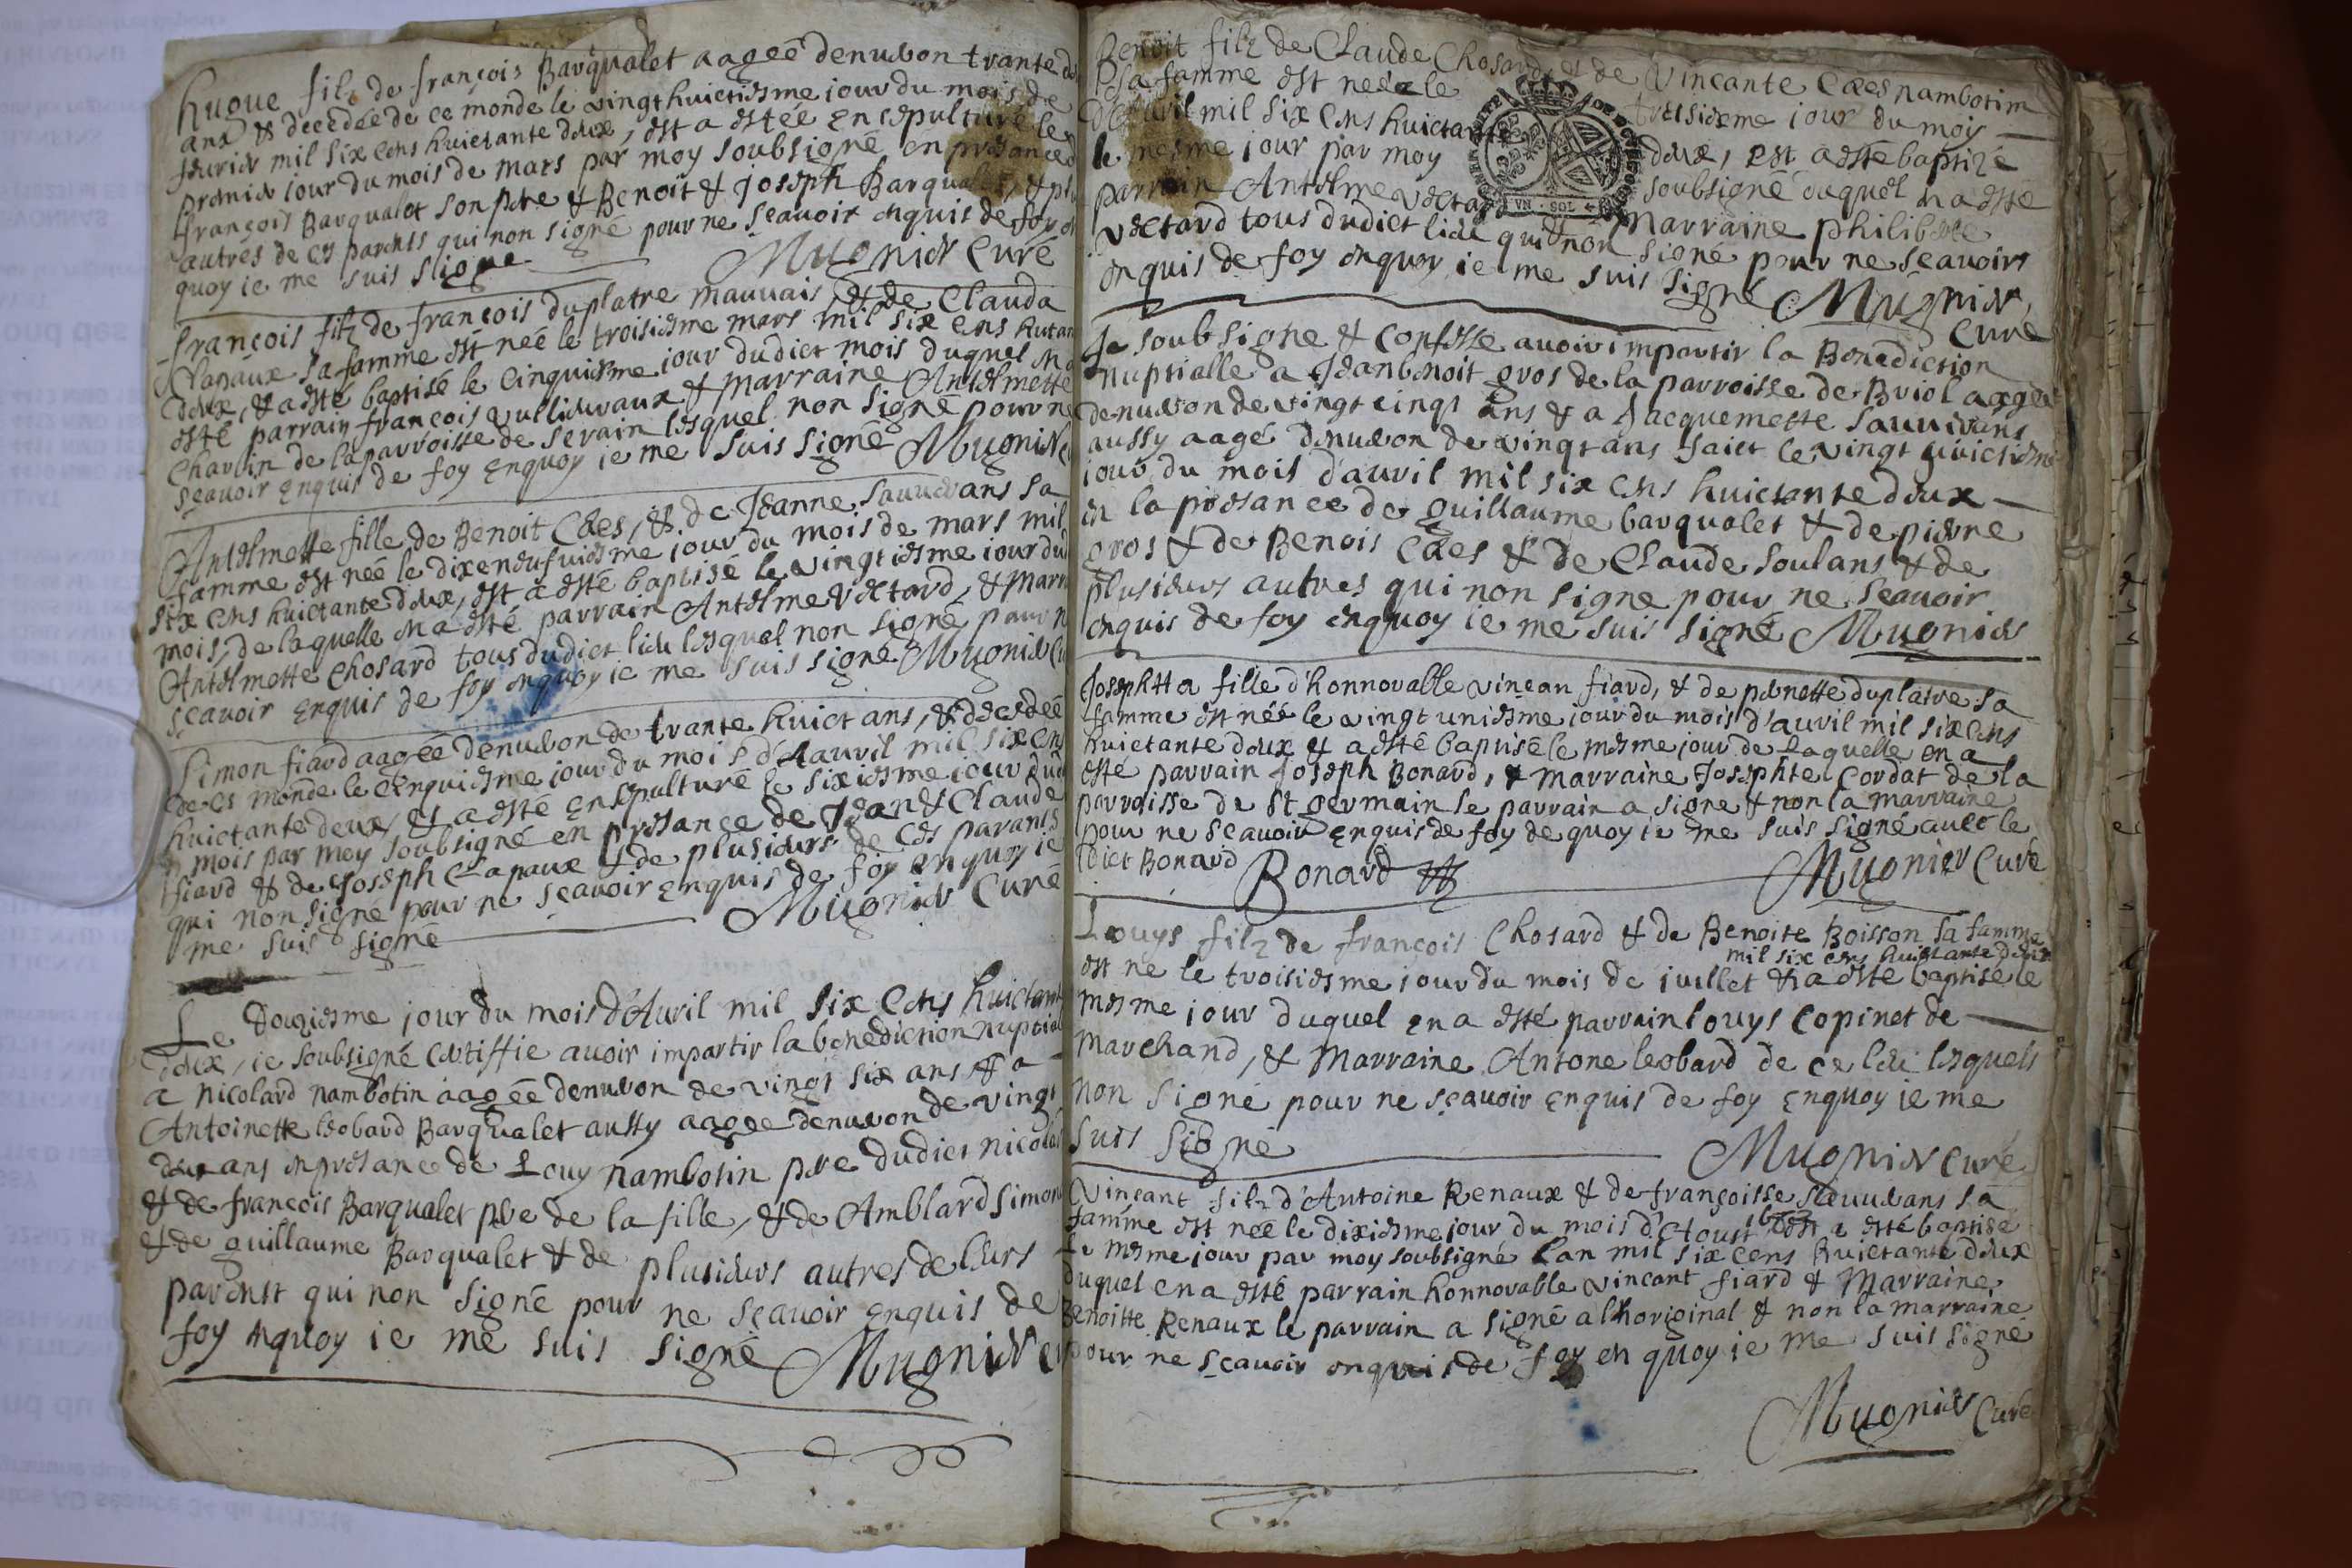 hugue filz de françois Barqualet aagée denuiron trante
ans & decedée de ce monde le vingt huictiesme iour du mois de
feurier mil six cens huictante deux, est a estée ensepulturé le
premier iour du mois de mars par moy soubsigné en presance
françois Barqualet son pere & Benoit & Joseph Barqualet, &
autres de ces parents qui non signé pour ne sçauoir enquis de foy
quoy ie me suis signe
Mugnier Curé
françois filz de françois duplatre mauuais, & de Clauda
Chapaux sa famme est née le troisiesme mars mil six cens
deux, & a esté baptisé le cinquiesme iour dudict mois duquel
esté parrain françois & marraine Antelmette
Charlin de la parroisse de serain lesquel non signé pour ne
sçauoir enquis de foy enquoy ie me suis signé Mugnier
Antelmette fille de Benoit Caes, & de Jeanne Sauuerans sa
famme est née le dixeneufuiesme iour du mois de mars mil
six cens huictante deux, est a esté baptisé le vingtiesme iour
mois, de laquelle en a esté parrain Antelme Vectard, &
Antelmette Chosard tous dudict lieu lesqual non signé pour
sçauoir enquis de foy enquoy ie me suis signé Mugnier
Simon fiard aagée denuiron de trante huict ans, & decedée
de ce monde le cinquiesme iour du mois d'Aauril mil six cens
huictante deux, & a esté ensepulturé le sixiesme iour
mois par moy soubsigné en presance de Jean & Claude
fiard & de Joseph Chapaux & de plusieurs de ces parants
qui non signé pour ne sçauoir enquis de foy enquoy ie
me suis signé
Mugnier Curé
Le Douziesme jour du mois d'Auril mil six cens
deux, ie soubsigné certiffie auoir impartir la benediction
a nicolard nambotin aagée denuiron de vingt six ans & a
Antoinette leobard Barqualet aussy aagée denuiron de vingt
deux ans en presance de Louy nambotin pere dudict
& de françois Barqualet pere de la fille, & de Amblard Simon
& de guillaume Barqualet & de plusieurs autres de leurs
parenst qui non signé pour ne sçauoir enquis de
foy enquoy ie me suis signé Mugnier
Benoit filz de Claude Chosard & de Vincante Caes nambotim
sa famme est née le treisiesme iour du moy
d'Auril mil six cens huictante deux, est a esté baptizé
le mesme jour par moy soubsigné duquel en a esté
parrain Antelme Vectard Marraine philiberte
Vectard tous dudict lieu qui non signé pour ne sçauoirs
enquis de foy enquoy ie me suis signé Mugnier
Curé
Je soubsigne & Confesse auoir impartir la Benediction
nuptialle a Jeanbenoit gros de la parroisse de Briol aagée
denuiron de vingt cinq ans & a Jacquemette Sauuerans
aussy aagé denuiron de vingt ans faict le vingt
iour du mois d'auril mil six cens huictante deux
en la presance de guillaume barqualet & de pierre
gros & de Benois Caes & de Claude Soulans & de
plusieurs autres qui non signe pour ne sçauoir
enquis de foy enquoy ie me suis signé Mugnier
Josephtta fille d'honnorable vinçan fiard, & de pernette duplatre sa
famme est née le vingt uniesme iour du mois d'auril mil six cens
huictante deux & a esté baptisé le mesme jour de laquelle en a
esté parrain Joseph Bonard, & marraine Josephte Cordat de la
parroisse de St germain le parrain a signe & non la marraine
pour ne sçauoir enquis de foy de quoy ie me suis signé auec le
dict Bonard Bonard
Mugnier Curé
Louys filz de françois Chosard & de Benoite Boisson sa famme
mil six cens huictante deux
est ne le troisiesme iour du mois de iuillet & a esté baptisé le
mesme iour duquel en a esté parrain louys Copinet de
Marchand, & Marraine Antone leobard de ce lieu lesquels
non signé pour ne sçauoir enquis de foy enquoy ie me
suis signé
Mugnier curé
Vinçant filz d'Antoine Renaux & de françoisse Sauuerans sa
famme est née le dixiesme jour du mois d'Aoust est a esté baptisé
le mesme jour par moy soubsigné l'an mil six cens huictante deux
duquel en a esté parrain honnorable vincant fiard & Marraine
Benoitte Renaux le parrain a signé a lhoriginal & non la marraine
pour ne sçauoir enquis de foy en quoy ie me suis signé
Mugnier Curé